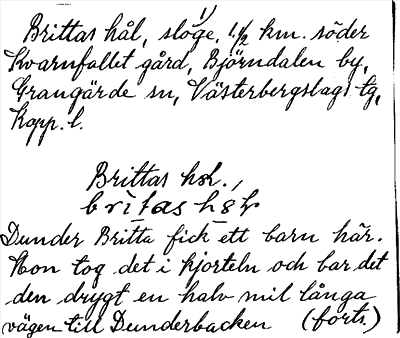 Brittas hål, slogg, 1 1/2 km. söder
Kvarnfallet gård, Björndalen by,
Grangärde sn, Västerbergslags tg,
Kopp. l.
Brittas hsk.,
britas
Dunder Britta fick ett barn här.
Hon tog det i kjorteln och bar det
den drygt en halv mil långa
vägen till Dunderbacken (forts.)